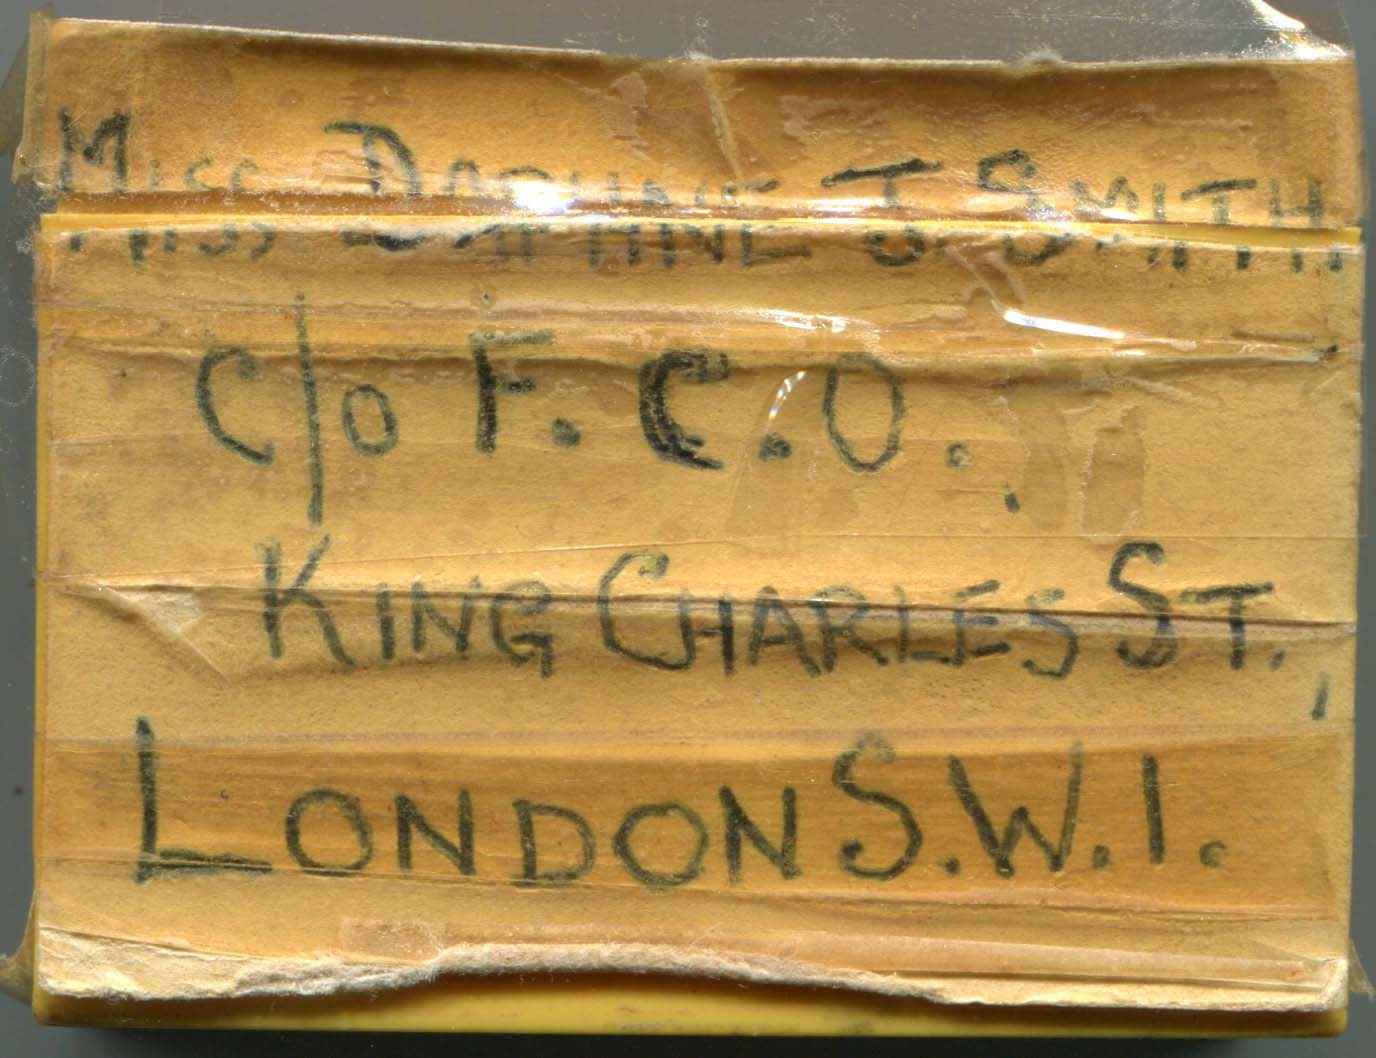 Miss Daphne J. Smith,
c/o F.C.O.,
King Charles St.,
London S.W.1.